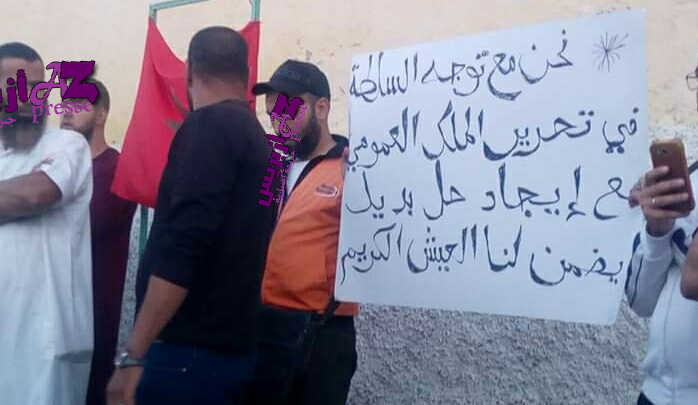 نحن مع توجه السلطة
في تحرير الملك العمومي
مع إيجاد حل بديل
يضمن لنا العيش الكريم
AZ
presse
أزبريس